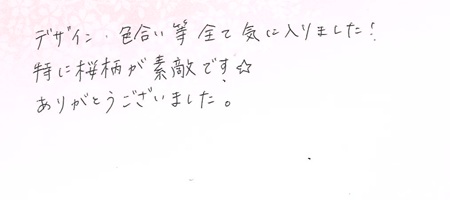 デザイン・色合い等全て気に入りました!
特に桜柄が素敵です☆
ありがとうございました。